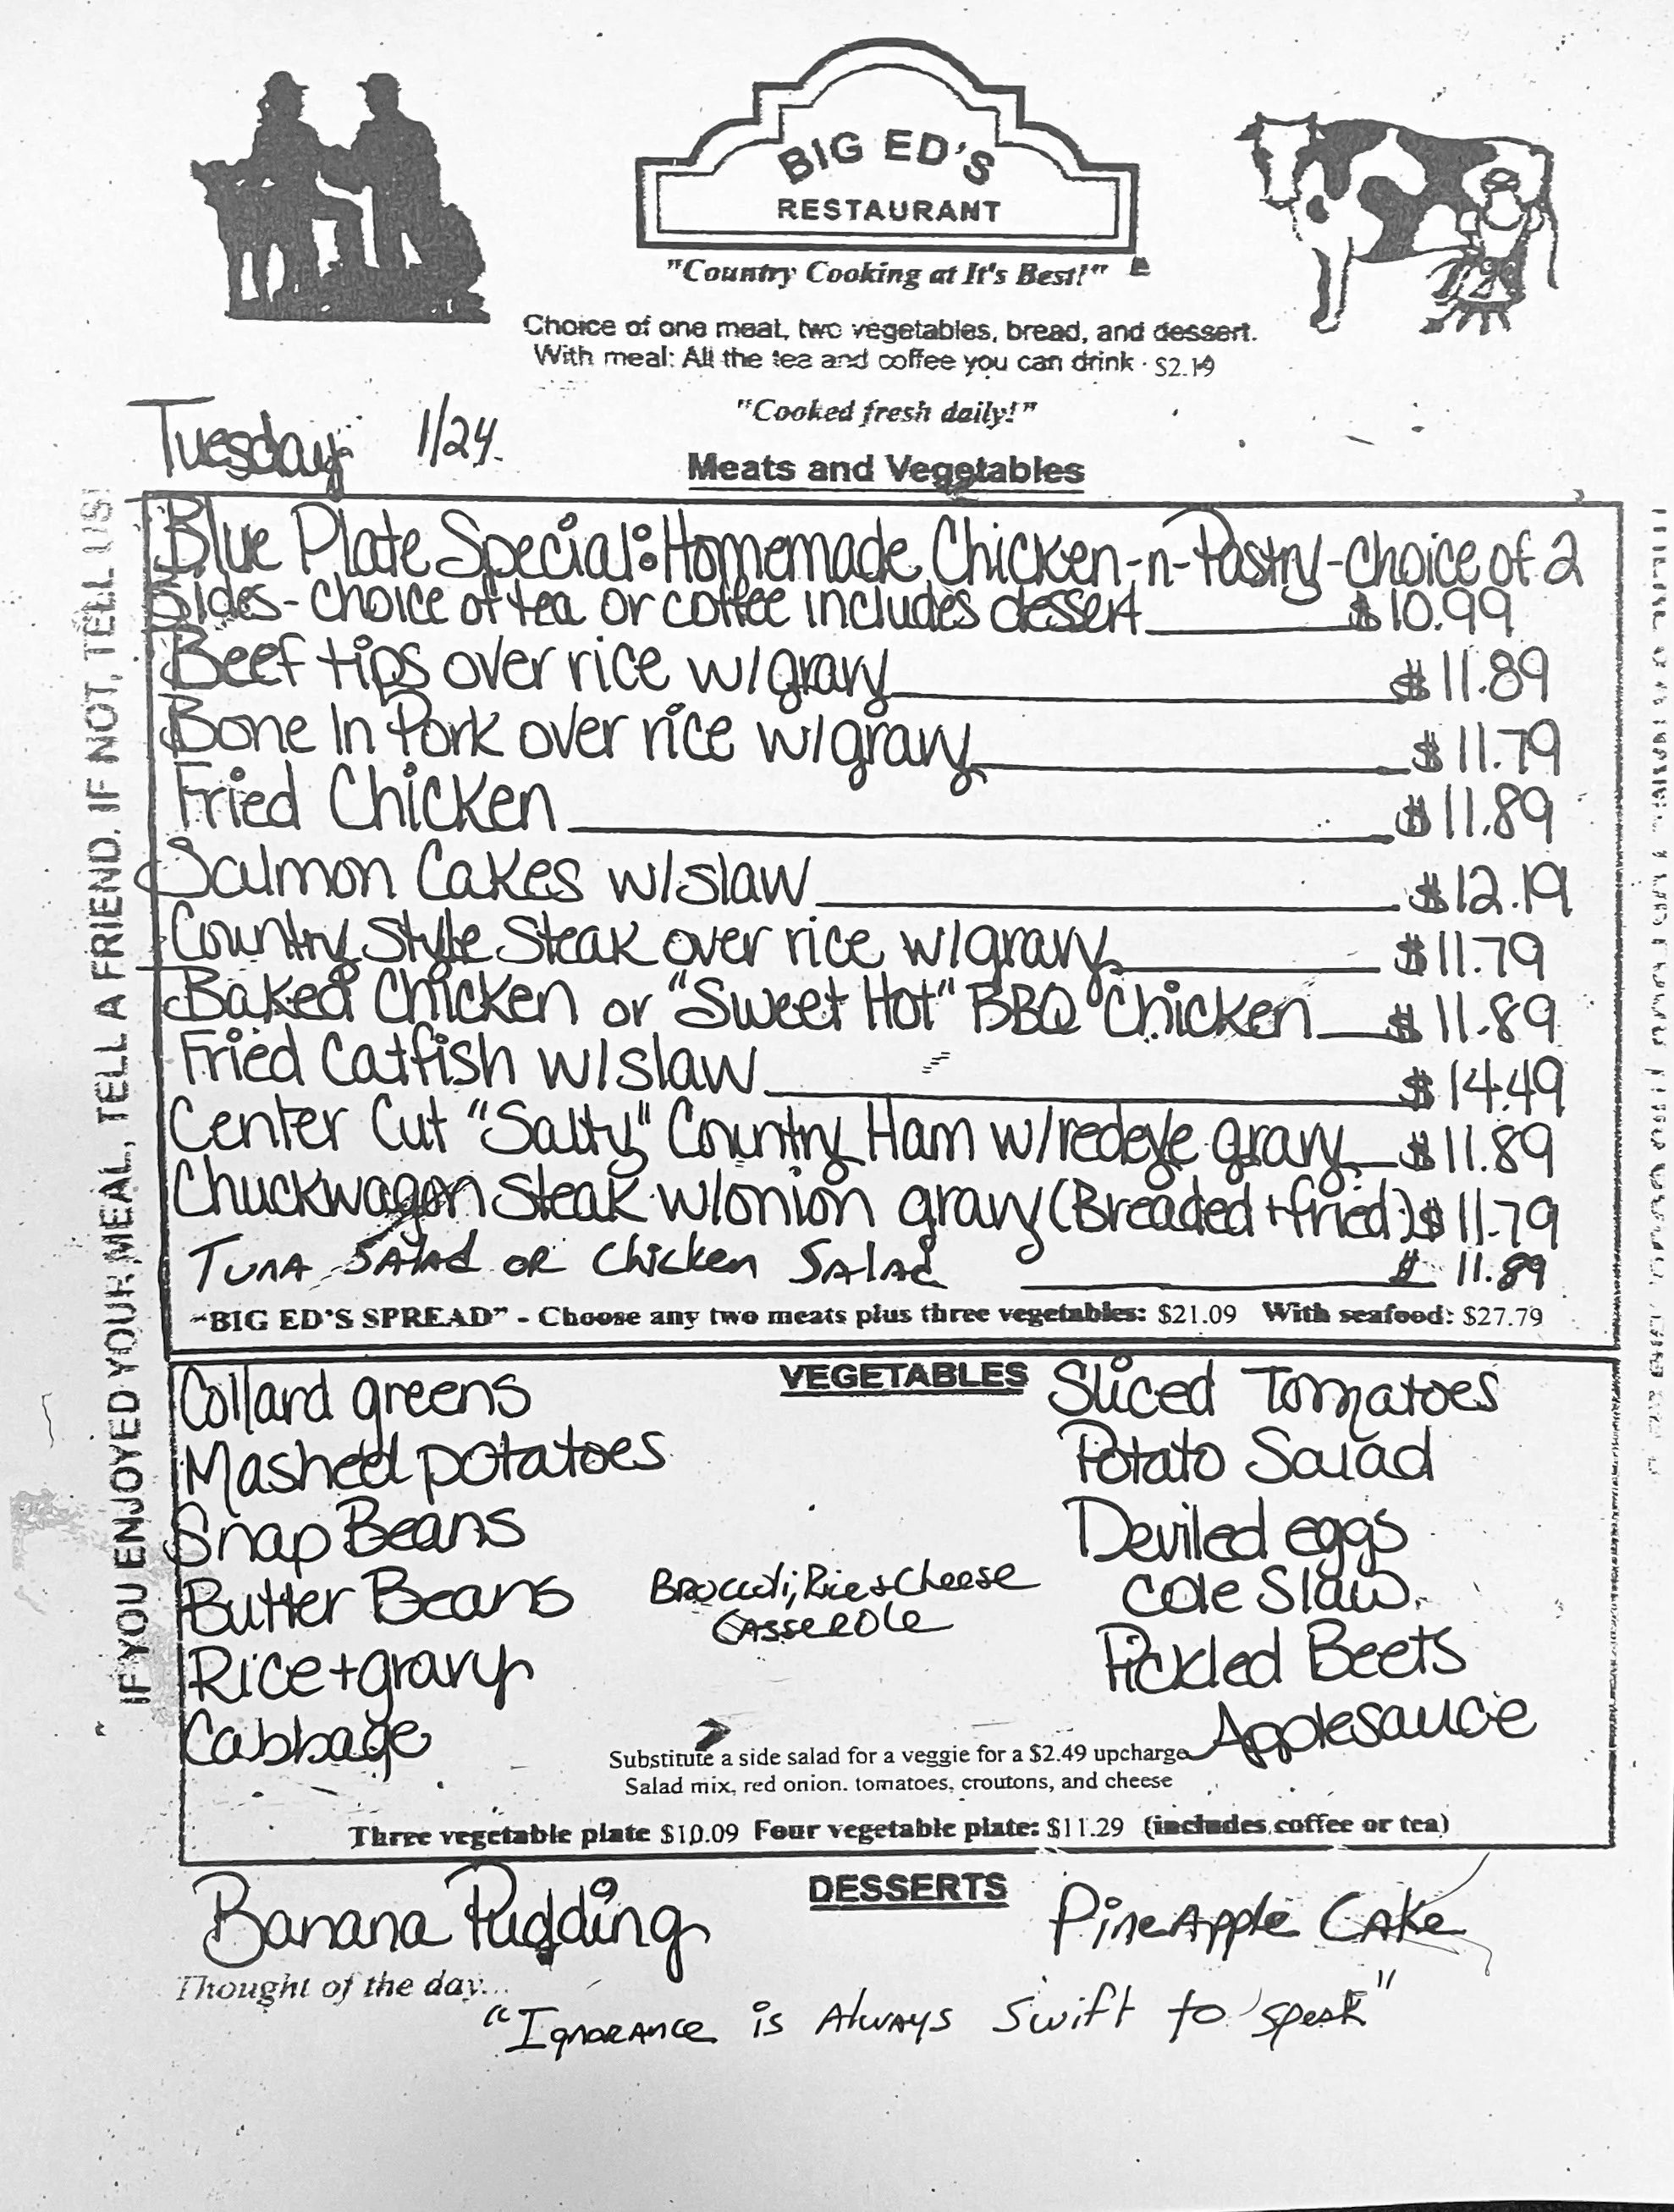 BIG ED'S
RESTAURANT
"Country Cooking at It's Best!"
Choice of one meat, two vegetables, bread, and dessert.
With meal: All the tea and coffee you can drink · $2.19
"Cooked fresh daily!"
Tuesday 1/24
Meats and Vegetables
IF YOU ENJOYED YOUR MEAL, TELL A FRIEND. IF NOT, TELL US!
Blue Plate Special: Homemade Chicken-n-Pastry-choice of 2
Sides-choice of tea or coffee includes dessert $10.99
Beef tips over rice w/gravy $11.89
Bone In Pork over rice w/gravy $11.79
Fried Chicken $11.89
Salmon Cakes w/slaw $12.19
Country Style Steak over rice w/gravy $11.79
Baked Chicken or "Sweet Hot" BBQ Chicken $11.89
Fried Catfish w/slaw $14.49
Center Cut "Salty" Country Ham w/redeye gravy $11.89
Chuckwagon Steak w/onion gravy (Breaded + fried) $11.79
Tuna Salad or Chicken Salad $11.89
"BIG ED'S SPREAD" - Choose any two meats plus three vegetables: $21.09 With seafood: $27.79
VEGETABLES
Collard greens
Mashed potatoes
Snap Beans
Butter Beans
Rice + gravy
Cabbage
Broccoli, Rice + Cheese
Casserole
Sliced Tomatoes
Potato Salad
Deviled eggs
Cole Slaw
Pickled Beets
Applesauce
Substitute a side salad for a veggie for a $2.49 upcharge
Salad mix, red onion. tomatoes, croutons, and cheese
Three vegetable plate $10.09 Four vegetable plate: $11.29 (includes coffee or tea)
DESSERTS
Banana Pudding
PineApple Cake
Thought of the day...
"Ignorance is Always Swift to speak"